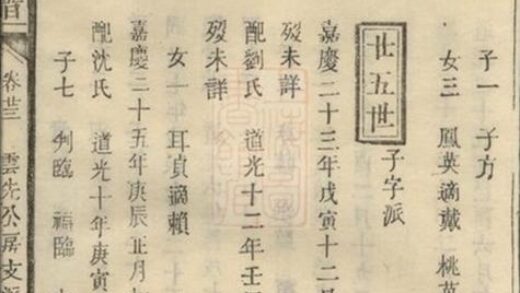 子一 子方
女三 鳳英適戴 桃英
廿五世
子字派
嘉慶二十三年戊寅十二月
歿未詳
配劉氏 道光十二年壬
歿未詳
女一 耳貞適賴
嘉慶二十五年庚辰正月
配沈氏 道光十年庚寅
子七 利臨 福臨
卷廿三 雲先公居支派